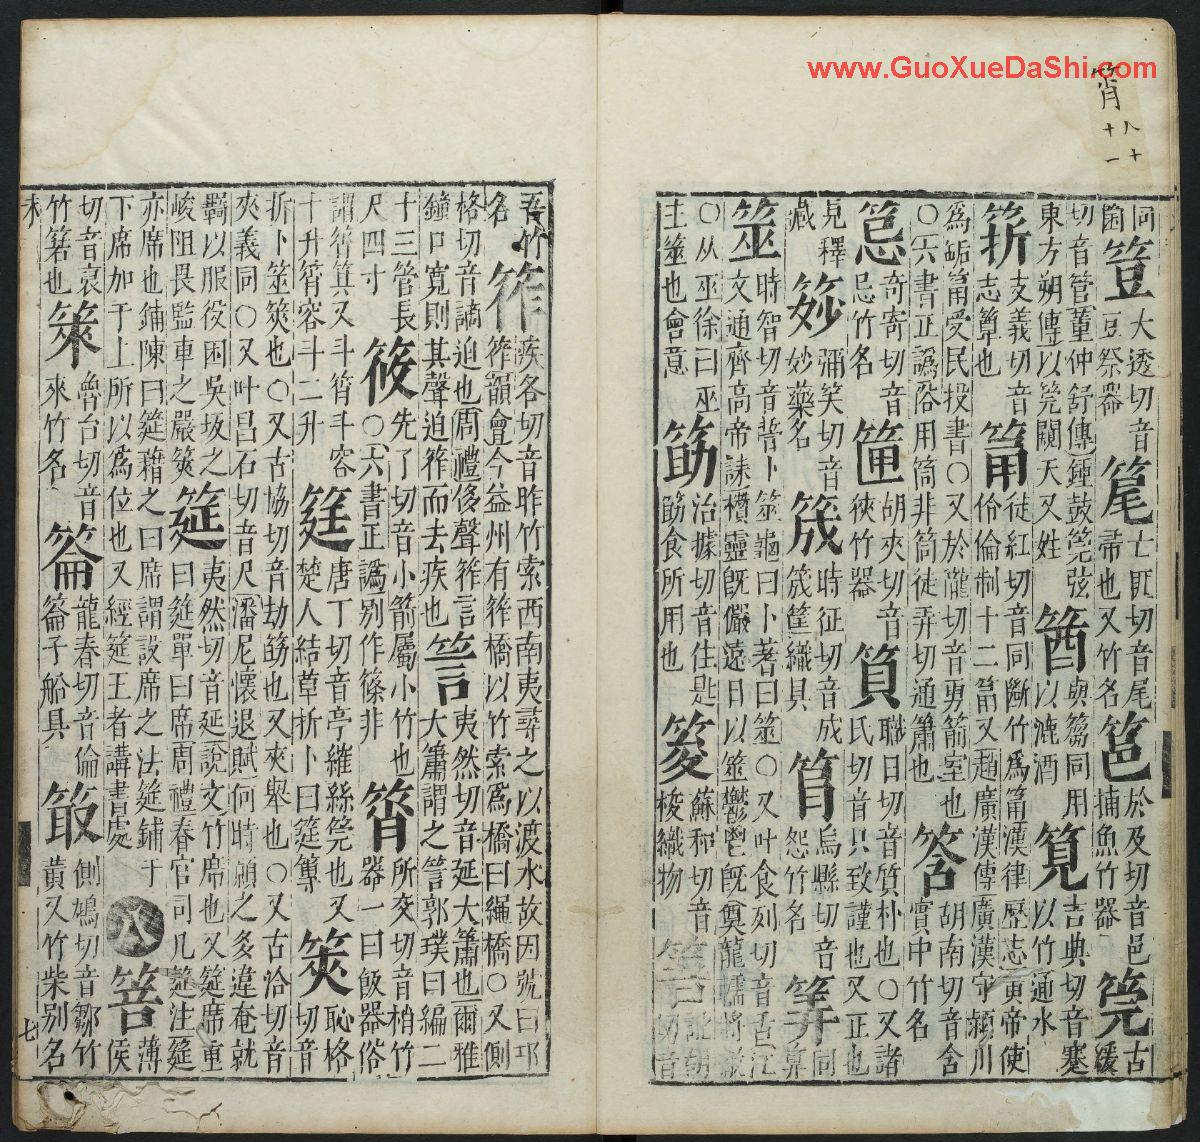 筲
八十
十一
同菌 䇺 大透切音豆祭器 亡匪切音尾帚也又竹名 於及切音邑捕魚竹器 筦 古緩
切音管董仲舒傳鍾鼓筦弦東方朔傳以筦闚天又姓 同用以漉酒 筧 吉典切音蹇以竹通水
支義切音志 也 筩 徒紅切音同斷竹為筩漢律歷志黃帝使伶倫制十二筩又趙廣漢傳廣漢守潁川
為缿筩受民投書○又於隴切音勇箭室也○六書正譌俗用筒非筒徒弄切通簫也 筨 胡南切音含實中竹名
奇寄切音忌竹名 筪 胡夾切音狹竹器 職日切音質朴也○又諸氏切音只致謹也又正也
見釋藏 彌笑切音妙妙藥名 筬 時征切音成筬筐織具 烏縣切音怨竹名 筭 同算
筮 時智切音誓卜筮龜曰卜蓍曰筮○又叶食列切音舌江文通齊高帝誄櫕靈旣儼遠日以筮鬱鬯旣奠龍 將啟
○从巫徐曰巫主筮也會意 筯 治據切音住匙筯食所用也 蘇和切音梭織物 切音
吾竹名 筰 疾各切音昨竹索西南夷尋之以渡水故因號曰邛筰韻會今益州有筰橋以竹索為橋曰繩橋○又側
格切音謫迫也周禮侈聲筰言鐘口寬則其聲迫筰而去疾也 䇾 夷然切音延大簫也爾雅大簫謂之䇾郭璞曰編二
十三管長尺四寸 筱 先了切音小箭屬小竹也○六書正譌別作篠非 筲 所交切音梢竹器一曰飯器俗
謂筲箕又斗筲斗容十升筲容斗二升 筳 唐丁切音亭維絲筦也又楚人結草折卜曰筳篿 筴 恥格切音
折卜筮筴也○又古協切音劫筯也又夾舉也○又古洽切音夾義同○又叶昌石切音尺潘尼懷退賦何時願之多違奄就
羈以服役困吳坂之峻阻畏監車之嚴筴 筵 夷然切音延說文竹席也又筵席重曰筵單曰席周禮春官司几筵注筵
亦席也鋪陳曰筵藉之曰席謂設席之法筵鋪于下席加于上所以為位也又經筵王者講書處 八 箁 薄侯
切音裒竹箬也 箂 魯台切音來竹名 䈁 龍春切音倫䈁子船具 側鳩切音鄒竹黃又竹柴別名
七